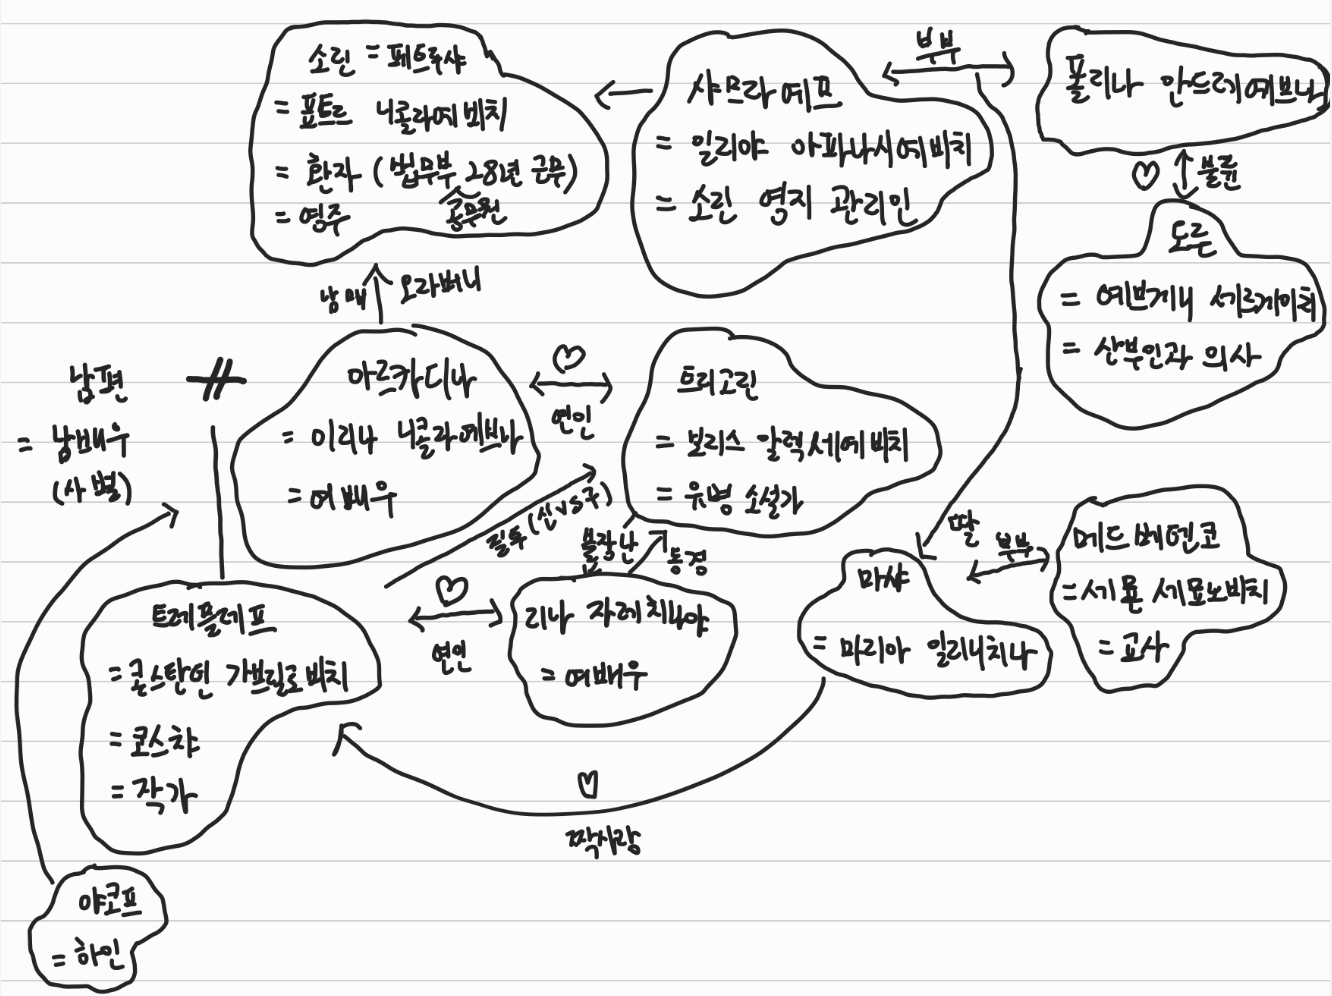 소린 = 페트루샤
= 표트르 니콜라예비치
= 환자 (법무부 28년 근무)
= 영주
공무원
샤므라예프
= 일리야 아파나시예비치
= 소린 영지 관리인
부부
폴리나 안드레예브나
♡ 불륜
도른
= 예브게니 세르게이치
= 산부인과 의사
남매
오라버니
남편
= 남배우
(사별)
아르카디나
= 이리나 니콜라예브나
= 여배우
♡
연인
트리고린
= 보리스 알렉세예비치
= 유명 소설가
질투 (신vs구)
물장난
동경
딸
부부
메드베덴코
= 세묜 세묘노비치
= 교사
마샤
= 마리아 일리니치나
트레플레프
= 콘스탄틴 가브릴로비치
= 코스챠
= 작가
♡
연인
리나 자레치나야
= 여배우
♡
짝사랑
야코프
= 하인